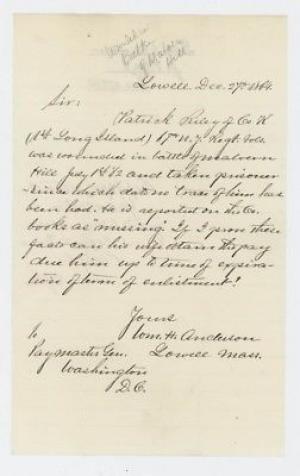 Wounded in
Battle
of Malvern
Hill
Lowell Dec. 27th 1864.
Sir:
Patrick Riley of Co. K
Long Island) N.Y. Regt. Vols.
was wounded in battle of Malvern
Hill July 1862 and taken prisoner
since which date no trace of him has
been had. He is reported on the Co.
books as "missing." If I prove these
facts can his wife obtain the pay
due him up to time of expira-
tion of term of enlistment?
Yours
Wm. H. Anderson
to
Paymaster Gen. Lowell Mass.
Washington
D.C.